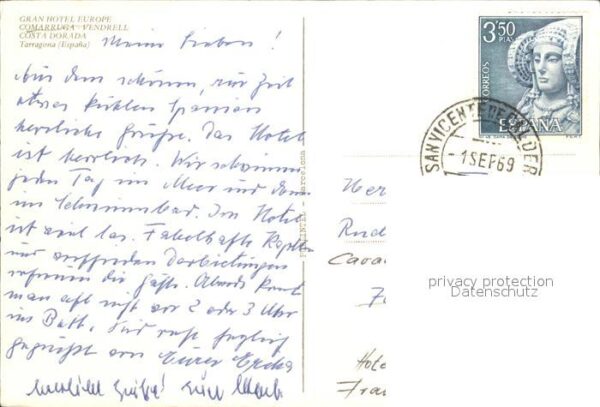 GRAN HOTEL EUROPE
COMARRUGA - VENDRELL
COSTA DORADA
Tarragona (España)
Meine Lieben!
Aus dem schönen, zur Zeit
etwas kühlen Spanien
herzliche Grüße. Das Hotel
ist herrlich. Wir schwimmen
jeden Tag im Meer und dann
im Schwimmbad. Im Hotel
ist viel los. Fabelhafte Kapellen
und Darbietungen
die Gäste. Abends kommt
man oft nicht vor 2 oder 3 Uhr
ins Bett. Seid recht
gegrüßt von Eurer Erika
herzliche Grüße! Euer
Barcelona
3'50
PTAS
CORREOS
ESPAÑA
SAN VICENTE DE CALDERS
- 1 SEP 69
Her
Rud
Cava
privacy protection
Datenschutz
Hote
Fra